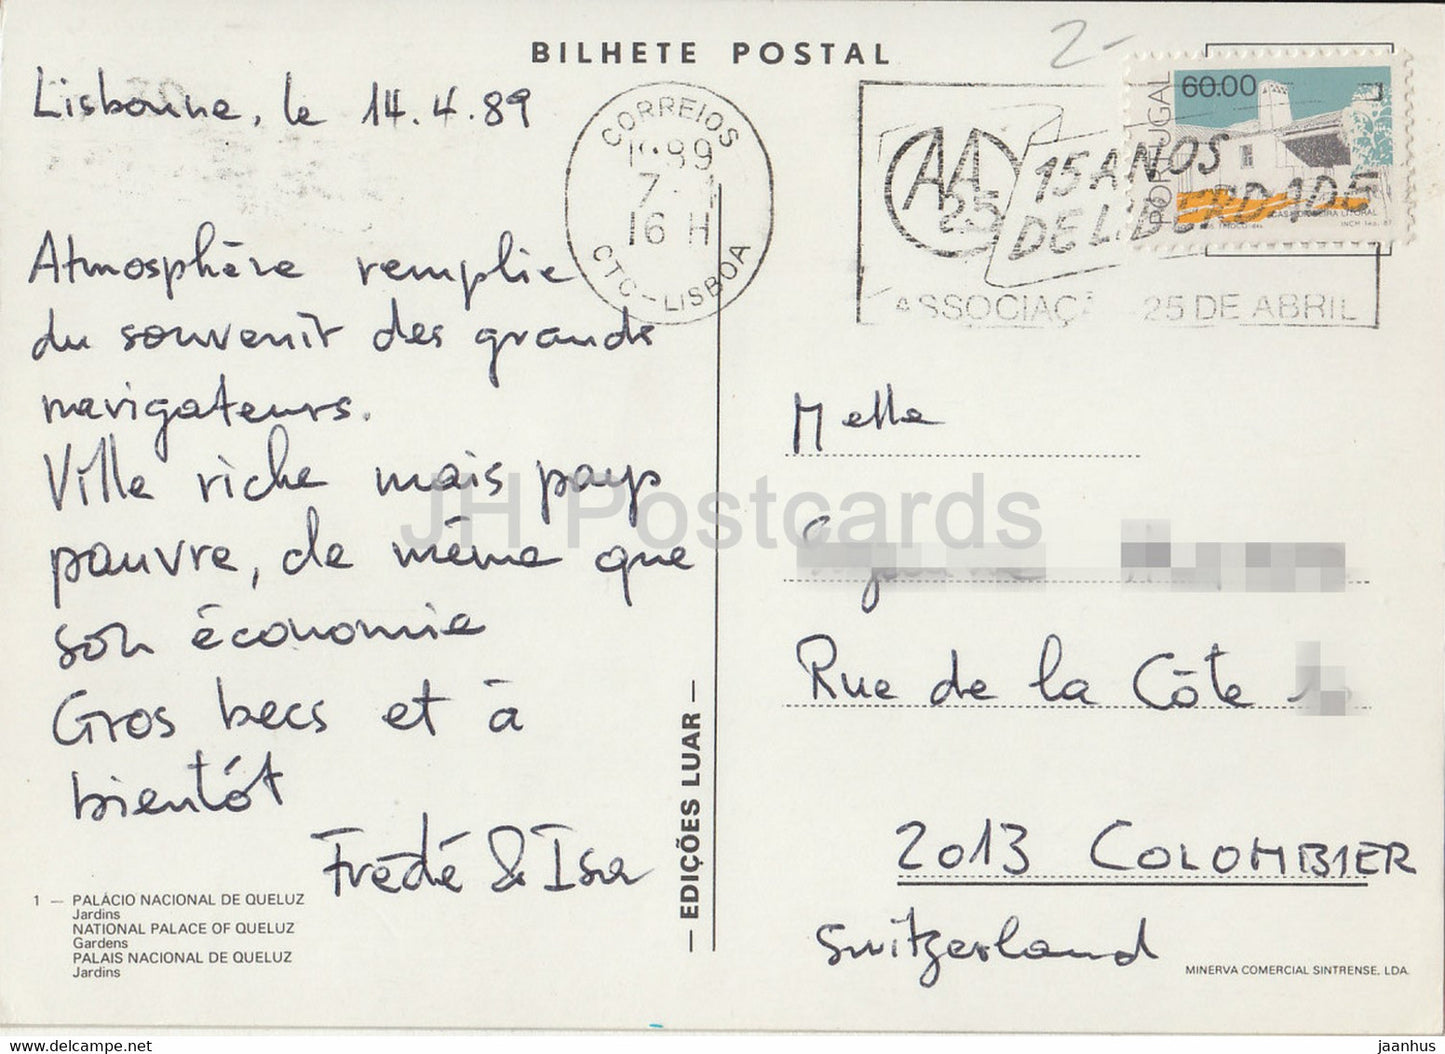 BILHETE POSTAL
2-
Lisbonne, le 14.4.89
Atmosphère remplie
du souvenir des grands
navigateurs.
Ville riche mais pays
pauvre, de même que
son économie
Gros becs et à
bientôt
Frédé & Isa
1 — PALÁCIO NACIONAL DE QUELUZ
Jardins
NATIONAL PALACE OF QUELUZ
Gardens
PALAIS NACIONAL DE QUELUZ
Jardins
— EDIÇÕES LUAR —
CORREIOS
1989
16 H
CTC - LISBOA
AA
25
15 ANOS
DE LIBERDADE
ASSOCIAÇÃ 25 DE ABRIL
PORTUGAL
60.00
LITORAL
INCM
Melle
Rue de la Côte
2013 COLOMBIER
Switzerland
MINERVA COMERCIAL SINTRENSE, LDA.
JH Postcards
www.delcampe.net
jaanhus